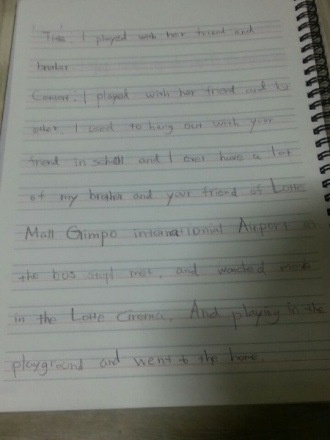 I played with her friend and
broher
I played with her friend and
I used to hang out with your
friend in and I ever have a lot
of my brother and your friend of Lotte
Mall Gimpo international Airport
the bus stop and watched
in the Lotte And playing in the
playground and went to the home.